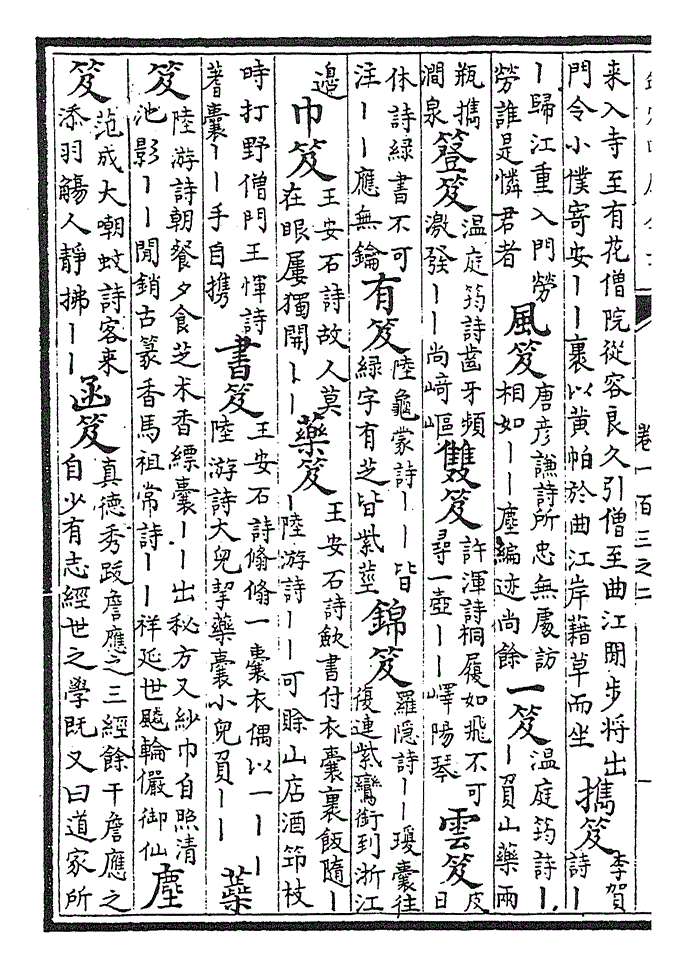 卷一百三之二
来入寺至有花僧院從容良久引僧至曲江閒步将出
門令小僕寄安丨丨裹以黄帕於曲江岸藉草而坐
擕笈
李賀
詩丨
丨歸江重入門勞
勞誰是憐君者
風笈
唐彦謙詩所忠無處訪
相如丨丨塵編迹尚餘
一笈
温庭筠詩丨
丨負山藥兩
瓶擕
澗泉
簦笈
温庭筠詩齒牙頻
激發丨丨尚﨑嶇
雙笈
許渾詩桐履如飛不可
尋一壺丨丨嶧陽琴
雲笈
皮
日
休詩緑書不可
注丨丨應無鑰
有笈
陸龜蒙詩丨丨皆
緑字有芝皆紫莖
錦笈
羅隠詩丨丨瓊囊往
復連紫鸞銜到浙江
邉
巾笈
王安石詩故人莫
在眼屢獨開丨丨
藥笈
王安石詩飲書付衣囊裹飯隨丨
丨陸游詩丨丨可賒山店酒笻枝
時打野僧門王惲詩
著囊丨丨手自携
書笈
王安石詩翛翛一囊衣偶以一丨丨
陸游詩大兒挈藥囊小兒負丨丨
蘂
笈
陸游詩朝餐夕食芝术香縹囊丨丨出秘方又紗巾自照清
池影丨丨閒銷古篆香馬祖常詩丨丨祥延世飈輪儼御仙
塵
笈
范成大嘲蚊詩客来
添羽觴人静拂丨丨
函笈
真徳秀跋詹應之三經餘干詹應之
自少有志經世之學既又曰道家所